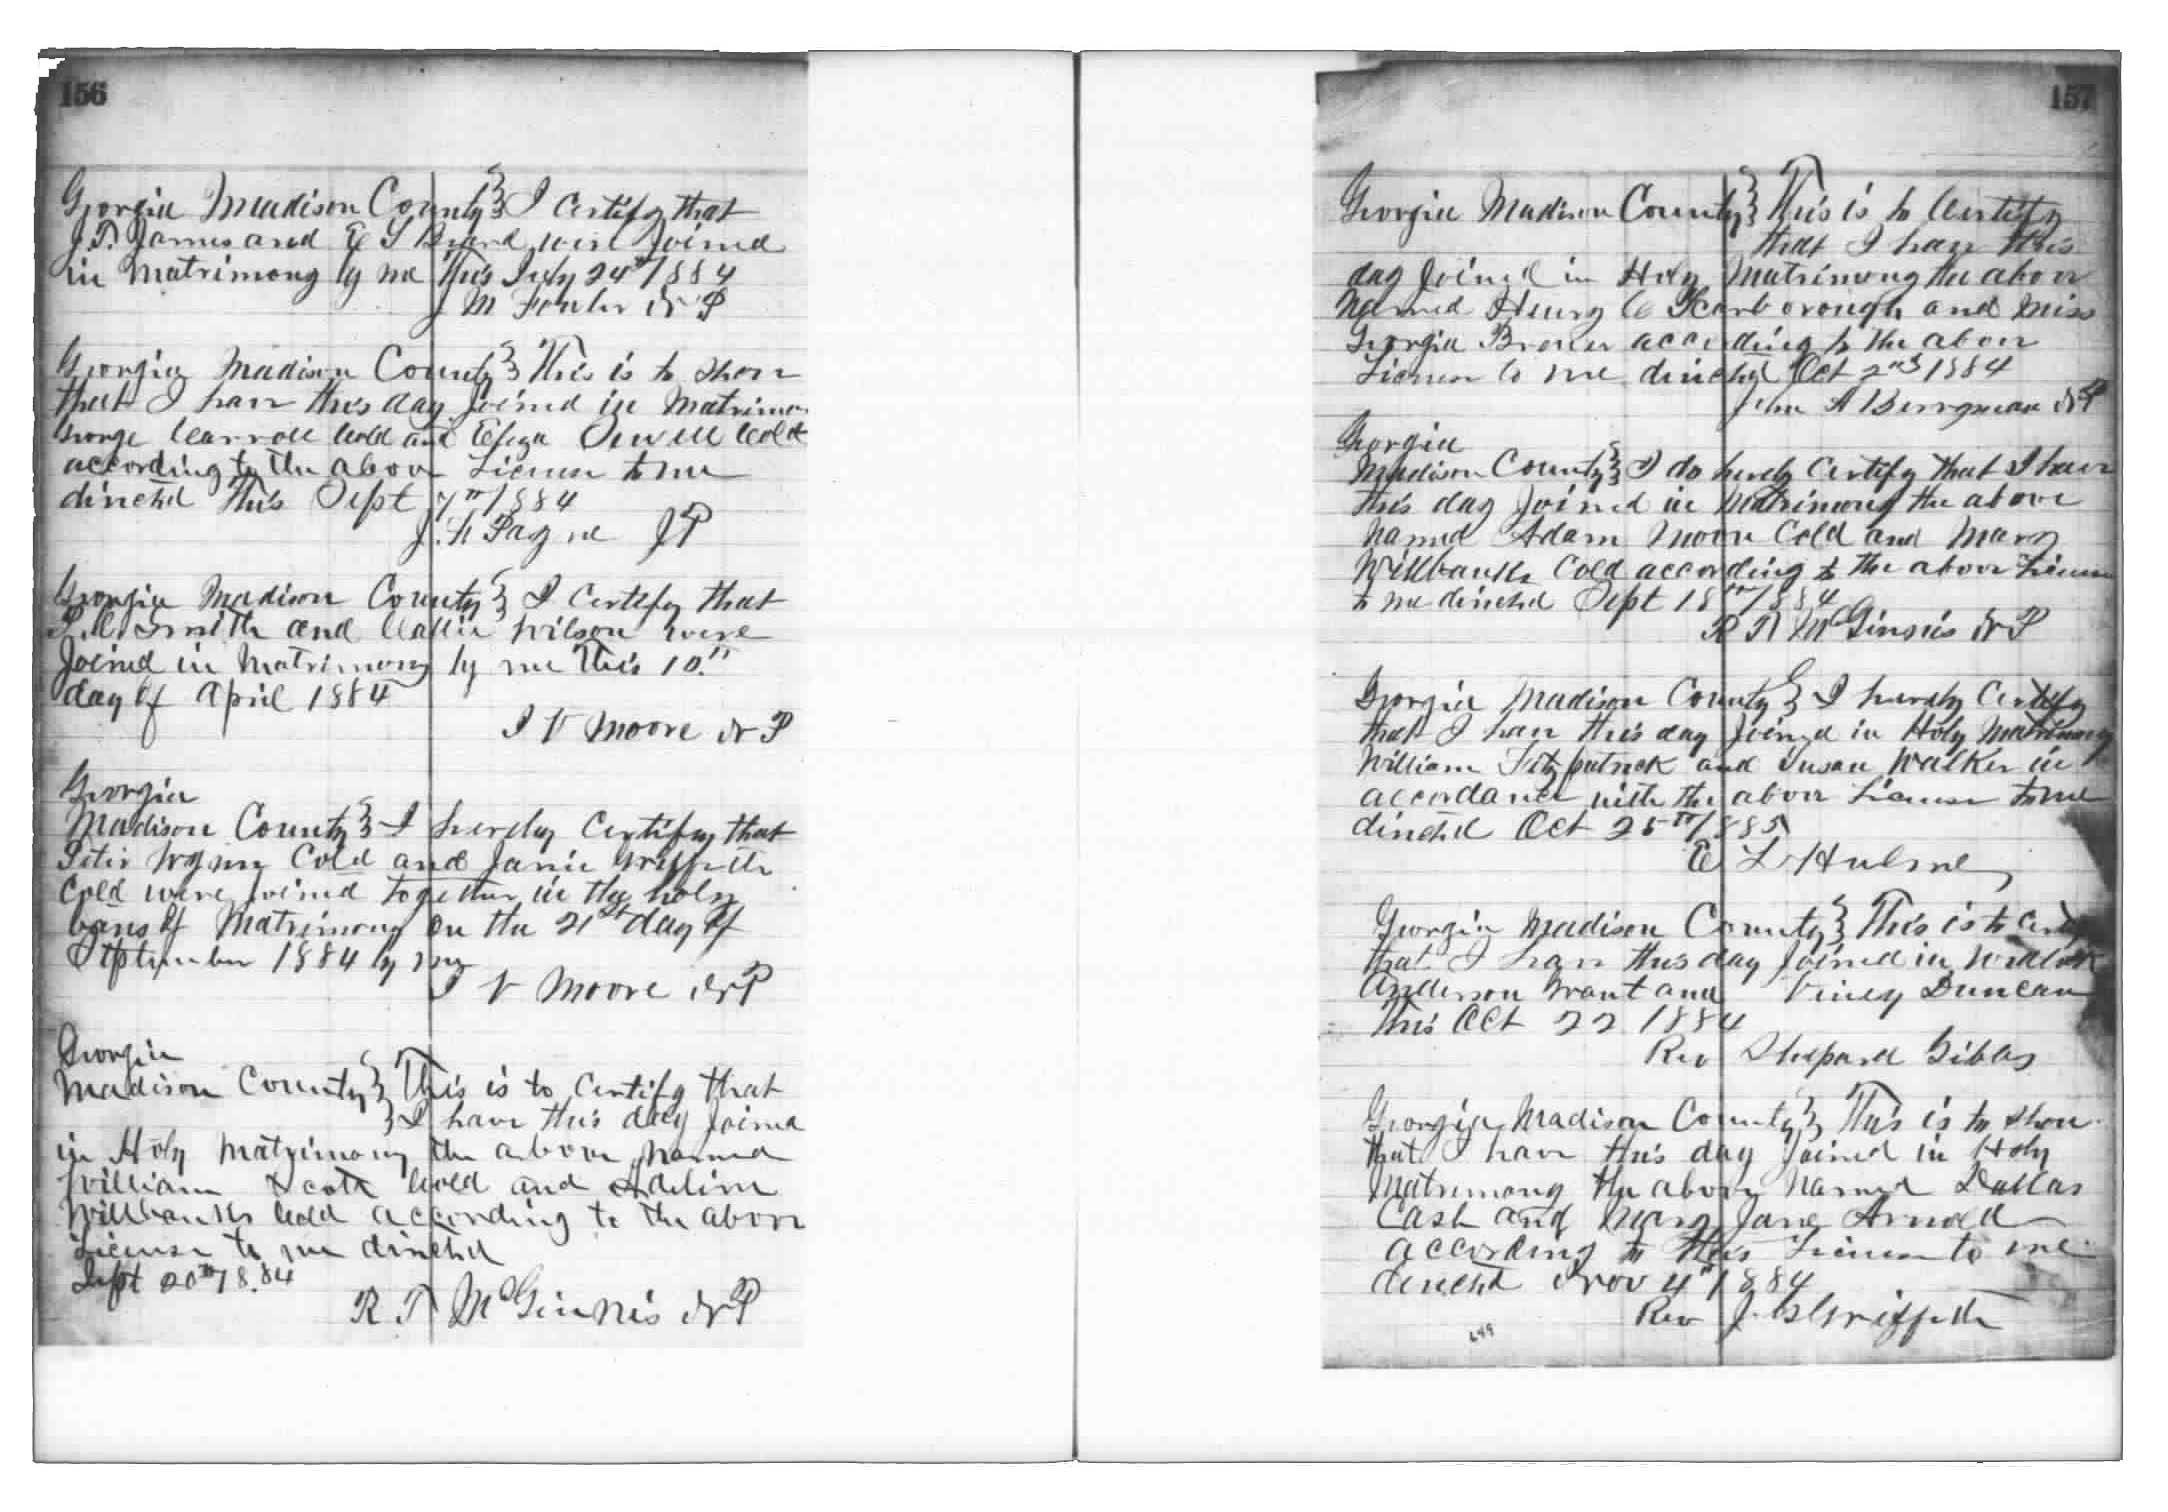 156
Georgia Madison County } I Certify that
J.T. James and E S Brand were Joined
in Matrimony by me This July 24th 1884
J M Fowler N P
Georgia Madison County } This is to Show
that I have this day Joined in Matrimo
George Carroll Cold and Eliza Sewell Cold
according to the above License to me
directed This Sept 7th 1884
J. H Payne J P
Georgia Madison County } I Certify that
Smith and Callie Wilson were
Joined in Matrimony by me This 10th
day of April 1884
I V Moore N P
Georgia
Madison County } I hereby Certify that
Peter Wynn Cold and Janie Griffeth
Cold were joined together in the holy
bans of Matrimony on the 21st day of
September 1884 by me
I V Moore N P
Georgia
Madison County } This is to Certify that
I have this day Joined
in Holy Matrimony the above named
William Scott Cold and Adeline
Willbanks Cold according to the above
License to me directed
Sept 20th 18.84
R T McGinnis N P
157
Georgia Madison County } This is to Certify
that I have this
day Joined in Holy Matrimony the above
Named Henry C Scarborough and Miss
Georgia Brown according to the above
License to me directed Oct 2nd 1884
John A Berryman N P
Georgia
Madison County } I do hereby Certify that I have
this day Joined in Matrimony the above
Named Adam Moon Cold and Mary
Willbanks Cold according to the above License
to me directed Sept 18th 1884
R T McGinnis N P
Georgia Madison County } I hereby Certify
that I have this day Joined in Holy Matrimony
William Fitzpatrick and Susan Walker in
accordance with the above License to me
directed Oct 25th 1885
E L Hulme
Georgia Madison County } This is to Certify
that I have this day Joined in Wedlock
Anderson Grant and Viney Duncan
This Oct 22 1884
Rev Shepard Gibbs
Georgia Madison County } This is to Show
that I have this day Joined in Holy
Matrimony the above Named Dallas
Cash and Mary Jane Arnold
according to this License to me
directed Nov 4th 1884
Rev J. Griffeth
649